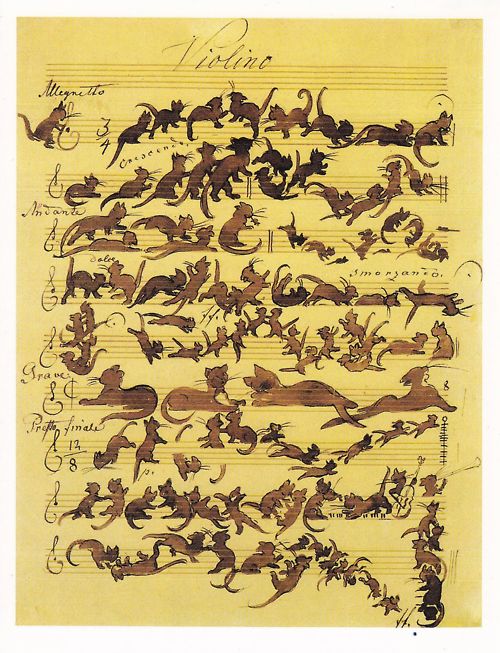 Violino
Allegretto
3
4
crescendo.
Andante
dolce
smorzando.
ff.
Grave
8
Presto finale
12
8
p.
ff.